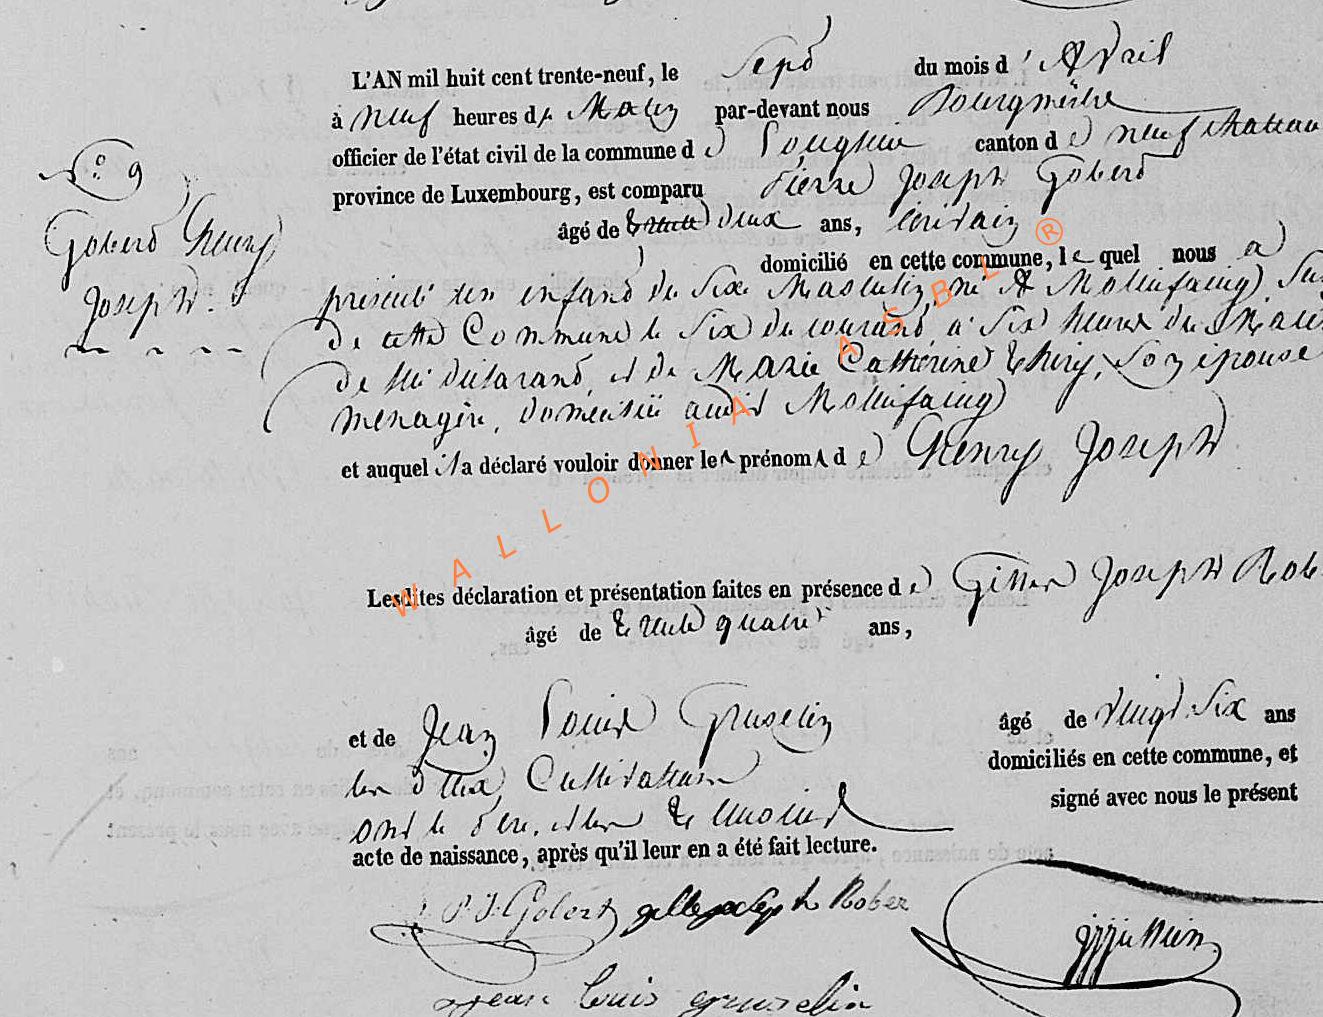 L'AN mil huit cent trente-neuf, le Sept du mois d'Avril
à neuf heures du Matin par-devant nous Bourgmestre
officier de l'état civil de la commune de Longlier canton de neufchateau
N.º 9
province de Luxembourg, est comparu Pierre Joseph Gobert
Gobert Henry
Joseph.
âgé de trente deux ans, écrivain
domicilié en cette commune, lequel nous a
présenté un enfant du Sexe Masculin, né à Mollinfaing
de cette Commune le Six du courant, à Six heures du Matin
de lui déclarant, et de Marie Catherine Thiry, Son épouse
ménagère, domiciliée audit Mollinfaing
et auquel il a déclaré vouloir donner les prénoms de Henry Joseph
WALLONIA ASBL ®
Lesdites déclaration et présentation faites en présence de Gilles Joseph Rober
âgé de trente quatre ans,
et de Jean Louis Gruselin âgé de vingt Six ans
les deux Cultivateurs domiciliés en cette commune, et
ont le père, et les témoins signé avec nous le présent
acte de naissance, après qu'il leur en a été fait lecture.
P. J. Gobert gille joseph Rober
jean louis gruselin